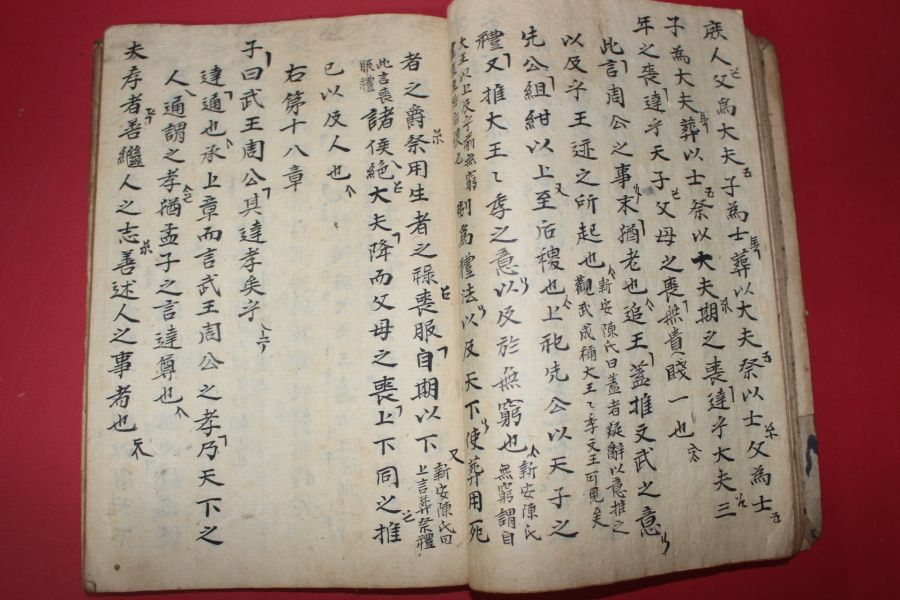 庶人父為大夫子為士葬以大夫祭以士父為士
子為大夫葬以士祭以大夫期之喪達乎大夫三
年之喪達乎天子父母之喪無貴賤一也
此言周公之事末猶老也追王蓋推文武之意
以及乎王迹之所起也新安陳氏曰蓋者疑辭以意推之
觀武成稱大王〻季文王可見矣
先公組紺以上至后稷也上祀先公以天子之
禮又推大王〻季之意以及於無窮也新安陳氏
無窮謂自
大王以上及乎前無窮
制為禮法以及天下使葬用死
者之爵祭用生者之祿喪服自期以下新安陳氏曰
上言葬祭禮
此言喪
服禮
諸侯絶大夫降而父母之喪上下同之推
已以及人也
右第十八章
子曰武王周公其達孝矣乎
達通也承上章而言武王周公之孝乃天下之
人通謂之孝猶孟子之言達尊也
夫孝者善繼人之志善述人之事者也